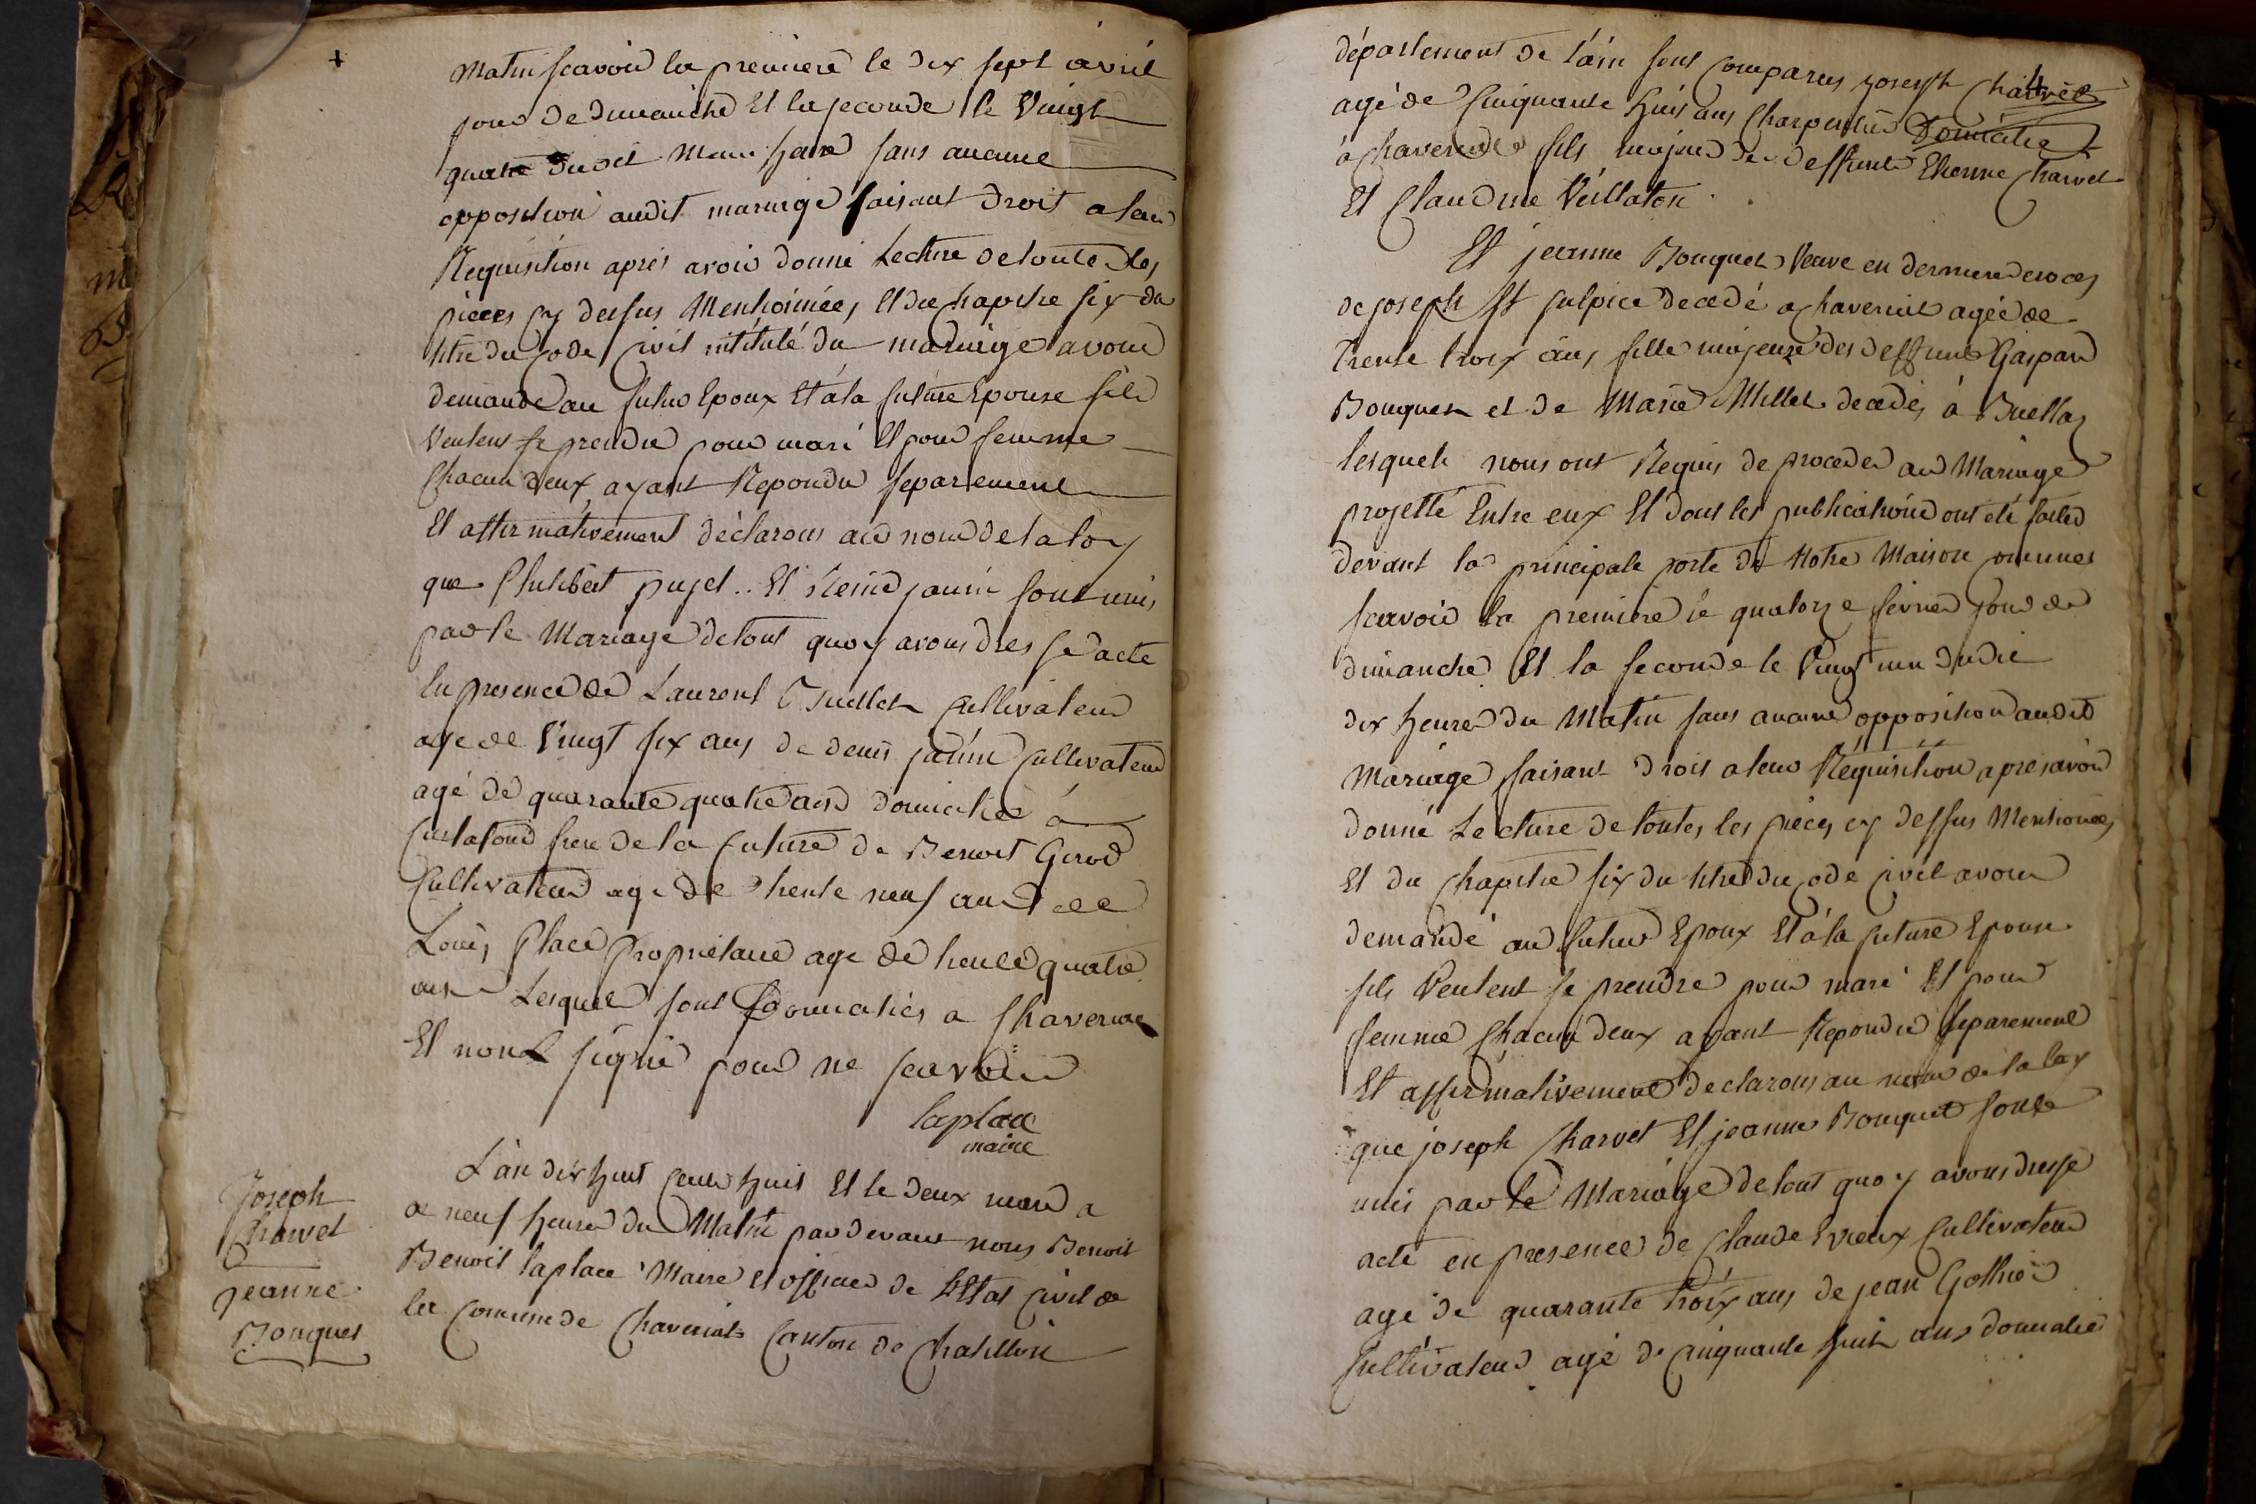 matin scavoir la premiere le dix sept avril
jour de dimanche Et la seconde le Vingt
quatre dudit meme heure sans aucune
opposition audit mariage faisant droit a leur
Requisition aprés avoir donné Lecture de toutes les
pieces cy dessus Mentionnées, Et du chapitre six du
titre du code Civil intitulé du mariage avons
demandé au futur Epoux Et á la future Epouse sils
Veulent se prendre pour mari Et pour femme
Chacun deux ayant Repondu separement
Et affirmativement déclarons au nom de la loy
que Philibert pujet .. Et Reine janin sont unis
par le Mariage de tout quoy avons dressé acte
En presence de Laurent Cultivateur
agé de Vingt six ans de denis janin Cultivateur
agé de quarante quatre ans domicilié á
frere de la future de Benoit Girod
Cultivateur agé de trente neuf ans de
Louis Place Propriétaire age de trente quatre
ans Lesquel sont domiciliés a Chaveriat
Et nont signé pour ne scavoir
laplace
maire
Joseph
Charvet
jeanne
Bouquet
L'an dix huit cent huit Et le deux mars a
a neuf heures du Matin pardevant nous Benoit
Benoit laplace Maire Et officier de L'Etat Civil de
la Commune de Chaveriat Canton de Chatillon
département de l'ain sont Comparus joseph Charvet
agé de Cinquante huit ans Charpentier Domicilié
á Chaveriat fils majeur de deffunt Etienne Charvet
Et Claudine Veillaton
Et jeanne Bouquet Veuve en derniere noces
de joseph St sulpice decedé a Chaveriat agée de
trente trois ans fille majeure des deffunts Gaspard
Bouquet et de Marie Millet decedés á Buellas
lesquels nous ont Requis de proceder au Mariage
projetté Entre eux Et dont les publications ont été faites
devant la principale porte de Notre Maison commune
scavoir la premiere le quatorze fevrier jour de
dimanche Et la seconde le Vingt un dudit
dix heures du Matin sans aucune opposition audit
Mariage faisant droit a leur Réquisition apres avoir
donné Lecture de toutes les piéces cy dessus Mentionées
Et du Chapitre six du titre du code civil avons
demandé au futur Epoux Et á la future Epouse
sils Veulent se prendre pour mari Et pour
femme Chacun deux ayant Repondu separement
Et affirmativement declarons au nom de la loy
que joseph Charvet Et jeanne Bouquet sont
unis par le Mariage de tout quoy avons dressé
acte en presence de Claude Evieux Cultivateur
agé de quarante troix ans de jean Gothier
Cultivateur agé de Cinquante huit ans domicilié